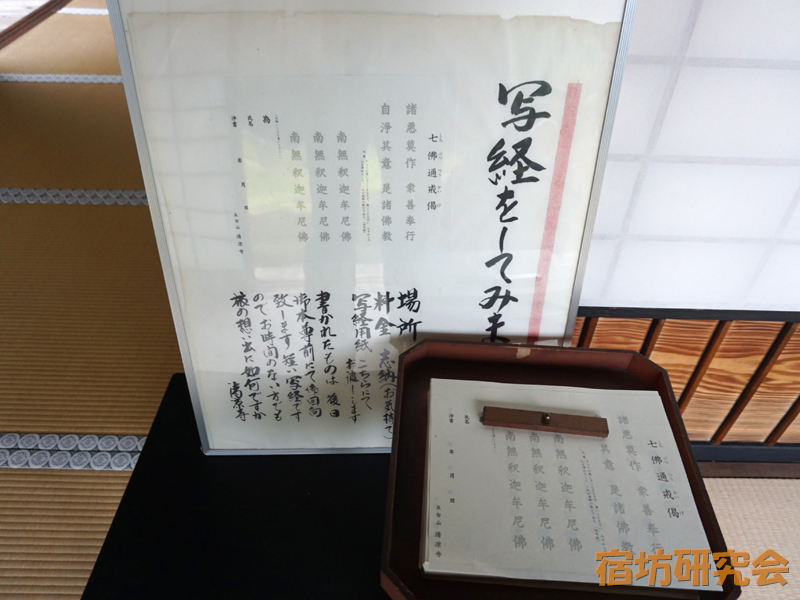 写経をしてみま
七佛通戒偈
諸悪莫作 衆善奉行
自浄其意 是諸佛教
南無釈迦牟尼佛
南無釈迦牟尼佛
南無釈迦牟尼佛
為
氏名
浄書 年 月 日
五台山 清凉寺
場所
料金 志納(お気持で)
写経用紙 こちらにて
お渡しします
書かれたものは 後日
御本尊前にて御回向
致します 短い写経です
ので お時間のない方でも
旅の想い出に如何ですか
清凉寺
七佛通戒偈
諸悪莫作 衆善奉行
其意 是諸佛教
南無釈迦牟尼佛
南無釈迦牟尼佛
南無釈迦牟尼佛
氏名
浄書 年 月 日
五台山 清凉寺
宿坊研究会